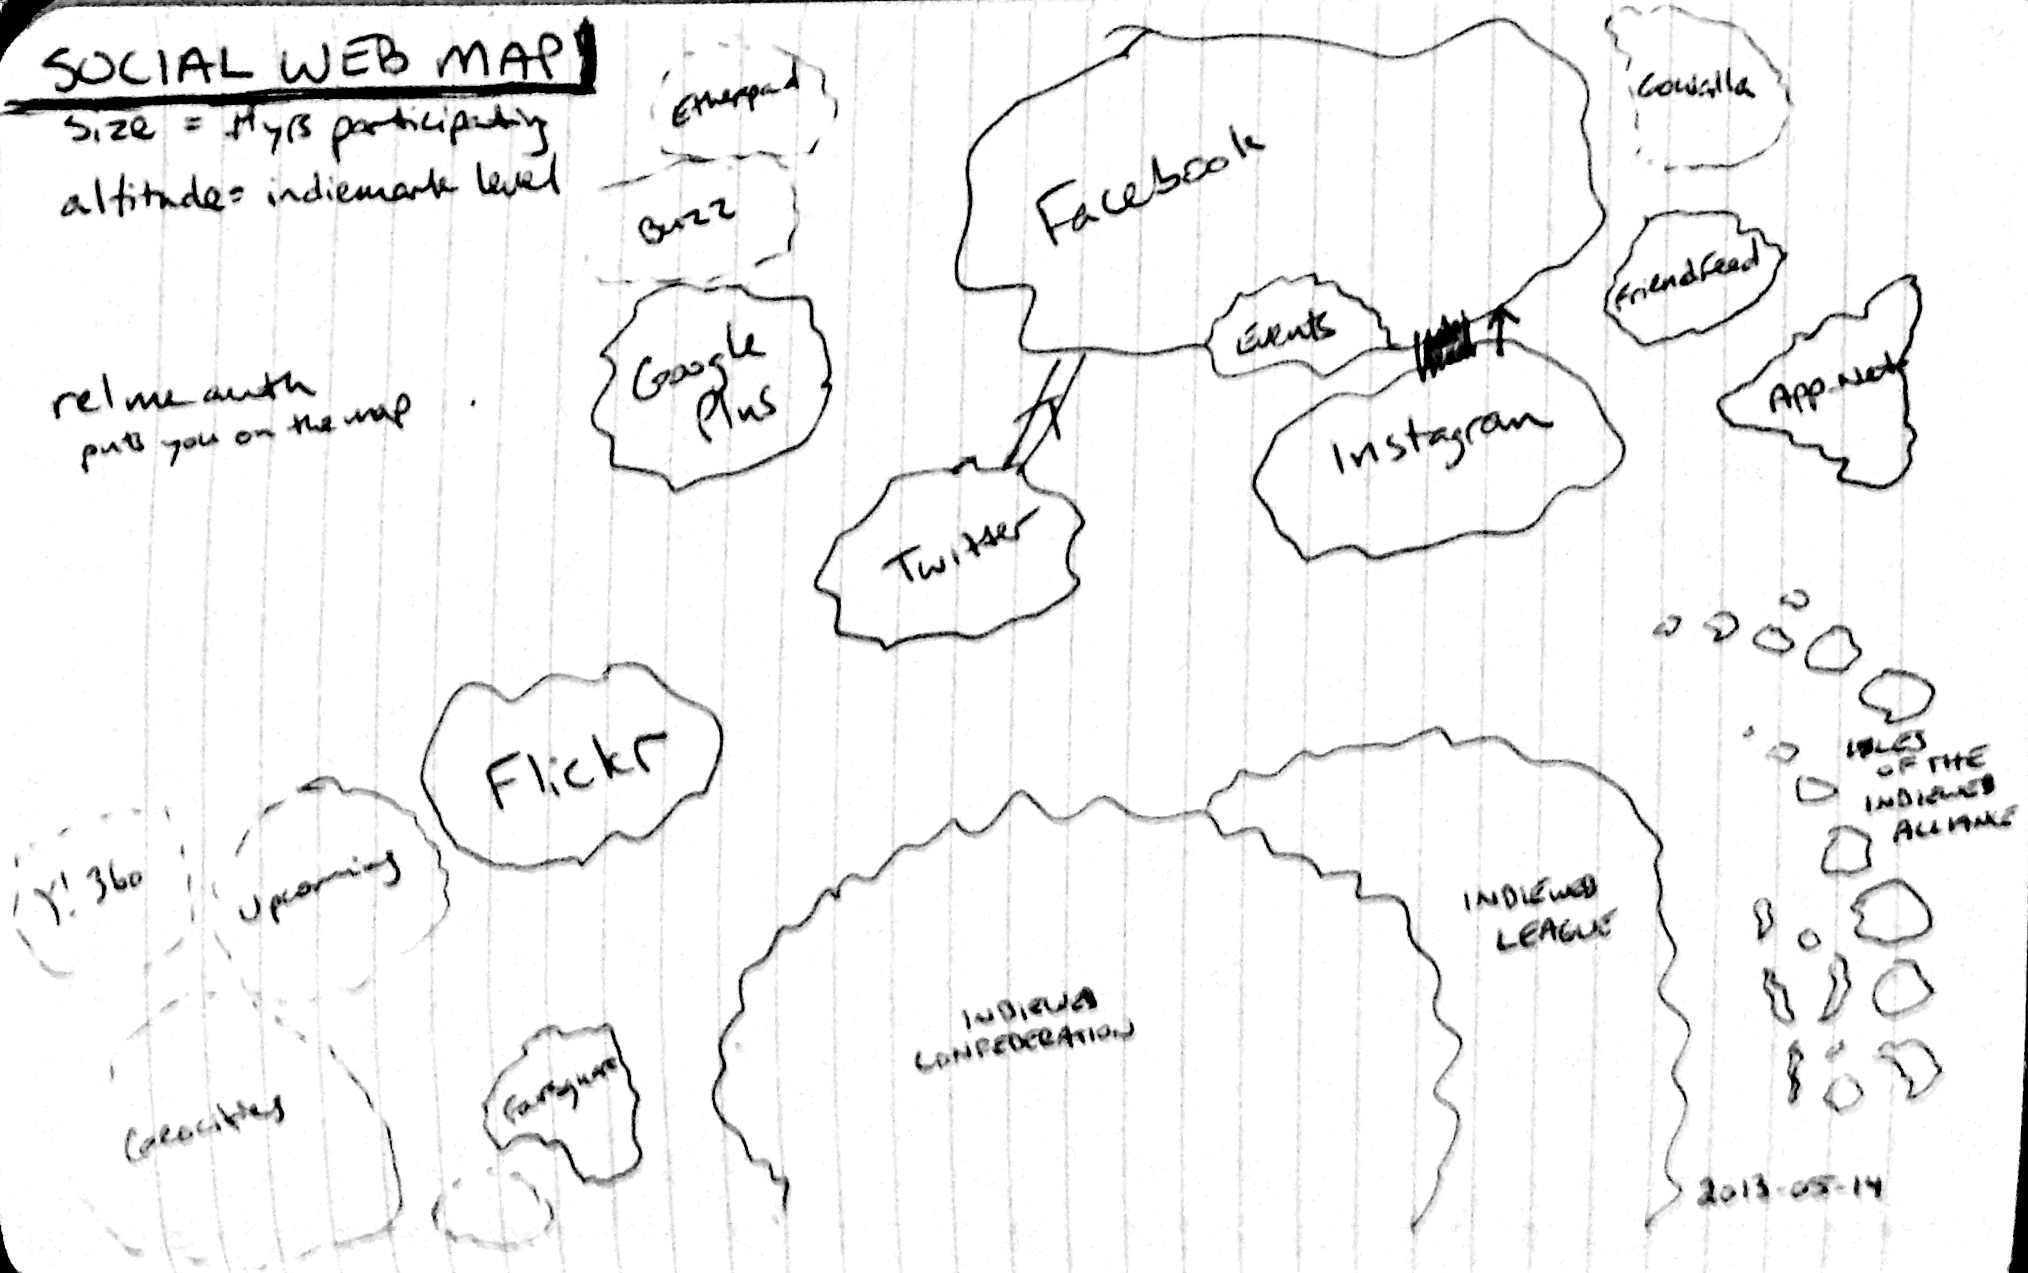 SOCIAL WEB MAP
size = # yrs participating
altitude = indiemark level
relmeauth
puts you on the map
Etherpad
Buzz
Google
Plus
Facebook
Events
Gowalla
FriendFeed
App.Net
Instagram
Twitter
Flickr
Y! 360
Upcoming
Geocities
Foursquare
INDIEWEB
CONFEDERATION
INDIEWEB
LEAGUE
ISLES
OF THE
INDIEWEB
ALLIANCE
2013-05-14